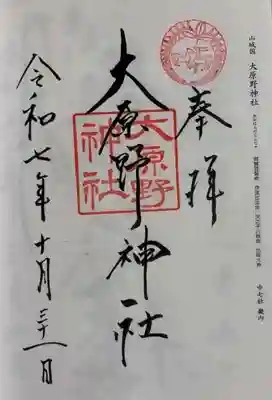 山城国 大原野神社
奉拝
大原野神社
大原野
神社
令和七年十月三十一日